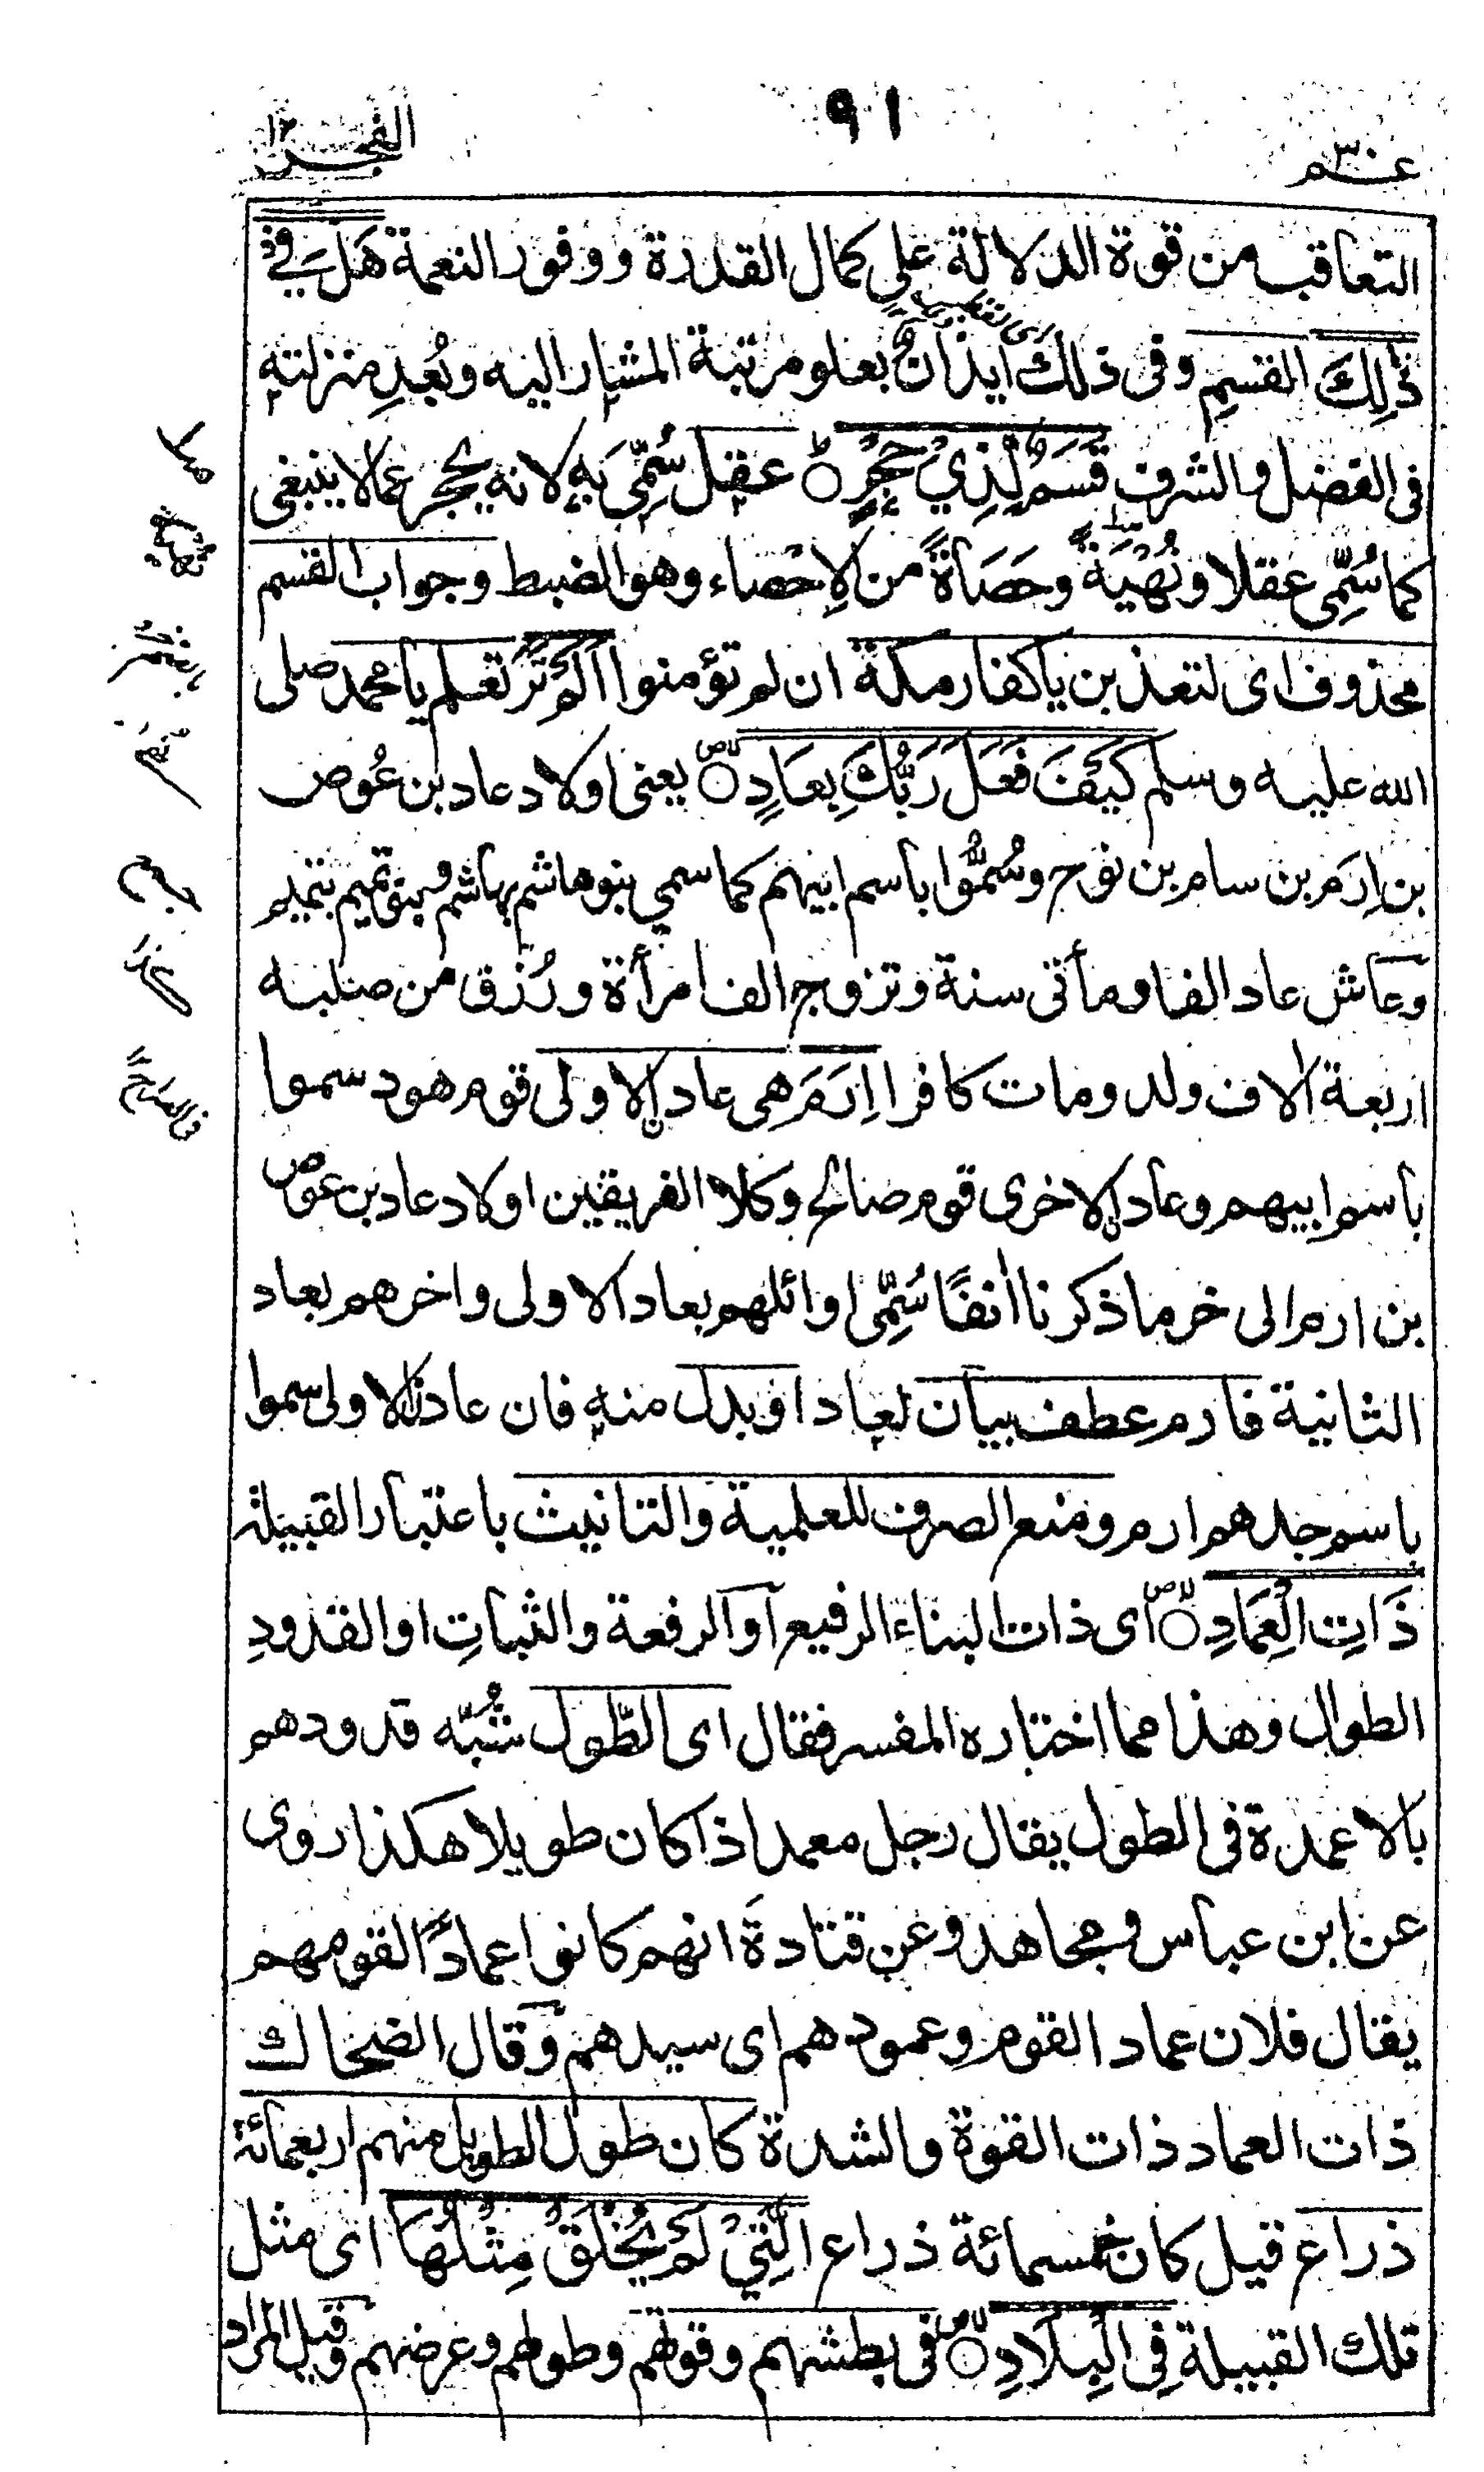 ٩١
عـم ٣٠
الفجر
التعاقب من قوة الدلالة على كمال القدرة ووفور النعمة هَلْ فِيْ
ذٰلِكَ القسمِ وفى ذلك ايذانٌ بعلو مرتبة المشار اليه وبُعدِ منزلته
فى الفضل والشرف قَسَمٌ لِّذِيْ حِجْرٍ عقل سُمِّى به لانه يحجر عما لا ينبغى
كما سُمِّى عقلا ونُهْيَةً وحَصَاةً من الاِحْصاء وهو الضبط وجواب القسم
محذوف اى لتعذبن يا كفار مكة ان لم تؤمنوا اَلَمْ تَرَ تعلم يا محمد صلى
الله عليه وسلم كَيْفَ فَعَلَ رَبُّكَ بِعَادٍ يعنى اولاد عاد بن عُوص
بن اِرَم بن سام بن نوح وسُمُّوا باسم ابيهم كما سمي بنو هاشم بهاشم وبنو تميم بتميم
وعاش عاد الفا ومأتى سنة وتزوج الف امرأة ورُزق من صلبه
اربعة الاف ولد ومات كافرا اِرَمَ هى عاد الاولى قوم هود سموا
باسم ابيهم وعاد الاخرى قوم صالح وكلا الفريقين اولاد عاد بن عوص
بن ارم الى خر ما ذكرنا اٰنفًا سُمِّى اوائلهم بعاد الاولى واخرهم بعاد
الثانية فارم عطف بيان لعاد او بدل منه فان عاد الاولى سموا
باسم جدهم ارم ومنع الصرف للعلمية والتانيث باعتبار القبيلة
ذَاتِ الْعِمَادِ اى ذات البناء الرفيع او الرفعة والثباتِ او القدودِ
الطوال وهذا مما اختاره المفسر فقال اى الطّول شُبّه قدودهم
بالاعمدة فى الطول يقال رجل معمد اذا كان طويلا هكذا روى
عن ابن عباس ومجاهد وعن قتادةَ انهم كانوا عمادًا لقومهم
يقال فلان عماد القوم وعمودهم اى سيدهم وقال الضحاك
ذات العماد ذات القوة والشدة كان طول الطويل منهم اربعمائة
ذراع قيل كان خمسمائة ذراع الَّتِيْ لَمْ يُخْلَقْ مِثْلُهَا اى مثل
تلك القبيلة فِى الْبِلَادِ فى بطشهم وقوتهم وطولهم وعرضهم وقيل المراد